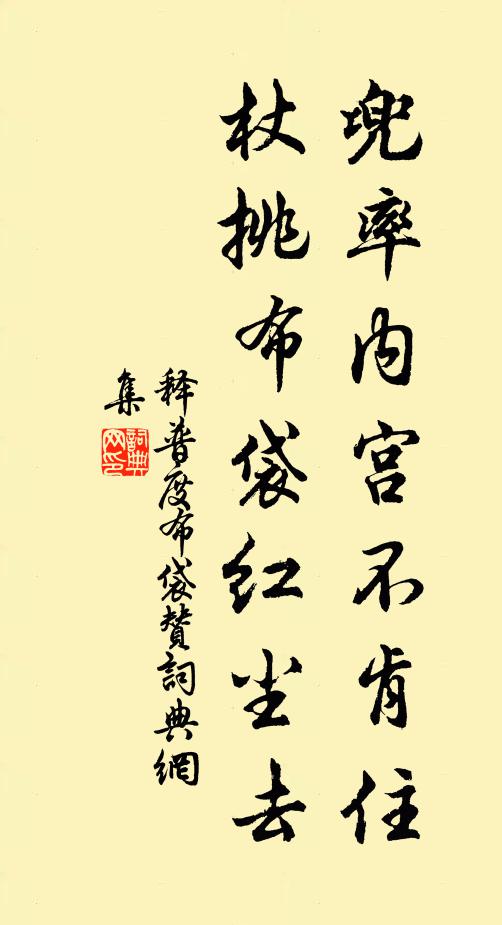 兜率内宫不肯住
杖挑布袋红尘去
释普度布袋赞詞典網
集
詞典
网印